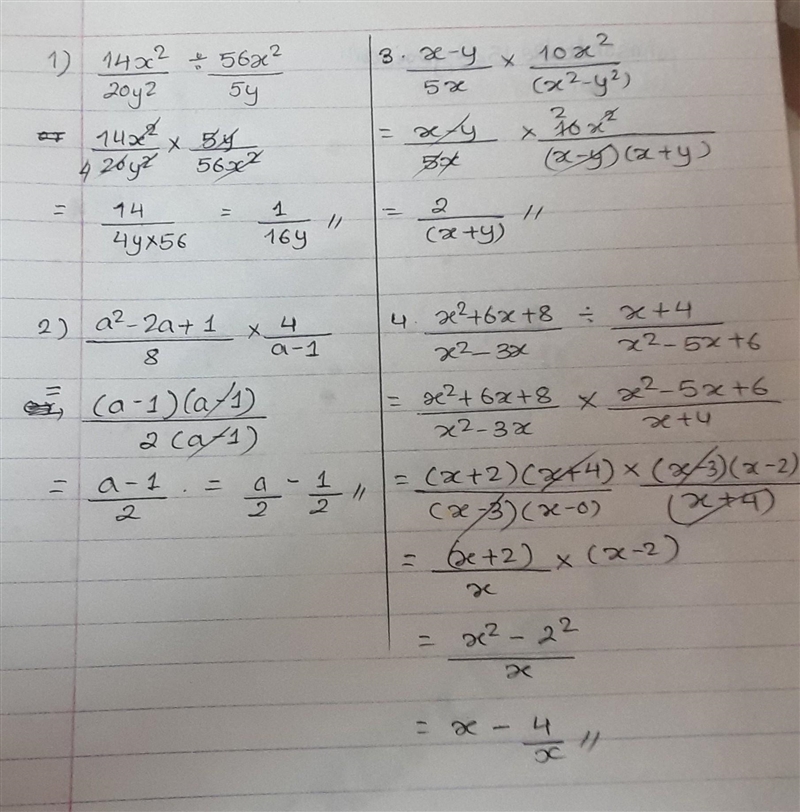 1) 14x²/20y² ÷ 56x²/5y
14x²/4 20y² × 5y/56x²
= 14/4y×56 = 1/16y //
2) a²-2a+1/8 × 4/a-1
= (a-1)(a-1)/2(a-1)
= a-1/2 . = a/2 - 1/2 //
3. x-y/5x × 10x²/(x²-y²)
= x-y/5x × 2 10x²/(x-y)(x+y)
= 2/(x+y) //
4. x²+6x+8/x²-3x ÷ x+4/x²-5x+6
= x²+6x+8/x²-3x × x²-5x+6/x+4
= (x+2)(x+4)/(x-3)(x-0) × (x-3)(x-2)/(x+4)
= (x+2)/x × (x-2)
= x²-2²/x
= x - 4/x //